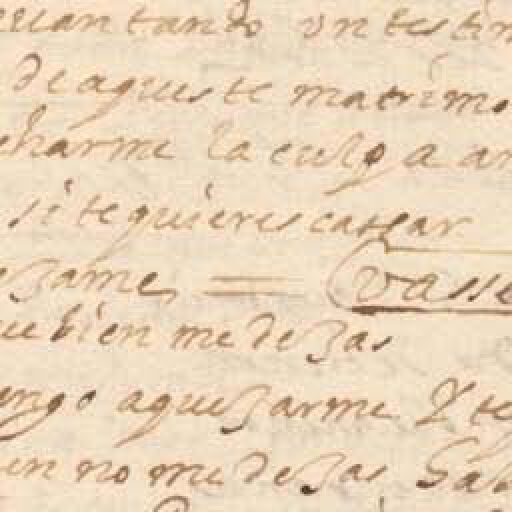 levantando un testim
de aqueste matrimo
charme la culpa a
si te quieres cassar
ezame vasse
ue bien me dexas
engo a quexarme Y te
en no me dexas Sal